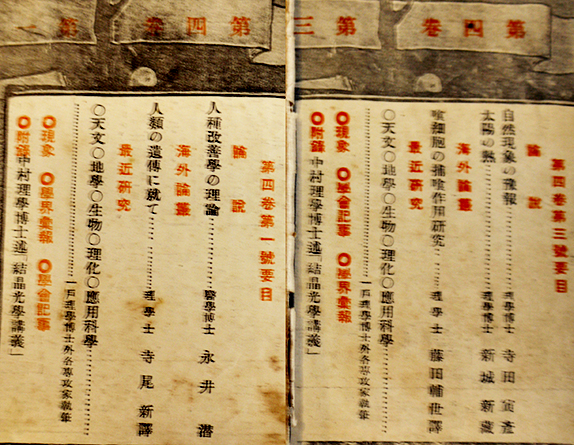 第四卷第三
第四卷第三號要目
論說
自然現象の豫報……理學博士 寺田寅彥
太陽の熱……理學博士 新城新藏
海外論叢
喰細胞の捕喰作用研究……理學士 藤田輔世譯
最近研究
○天文○地學○生物○理化○應用科學
……一戶理學博士外各專攻家執筆
◎現象 ◎學會記事 ◎學界彙報
◎附錄 中村理學博士述「結晶光學講義」
第四卷第一
第四卷第一號要目
論說
人種改善學の理論……醫學博士 永井潛
海外論叢
人類の遺傳に就て……理學士 寺尾新譯
最近研究
○天文○地學○生物○理化○應用科學
……一戶理學博士外各專攻家執筆
◎現象 ◎學界彙報 ◎學會記事
◎附錄 中村理學博士述「結晶光學講義」